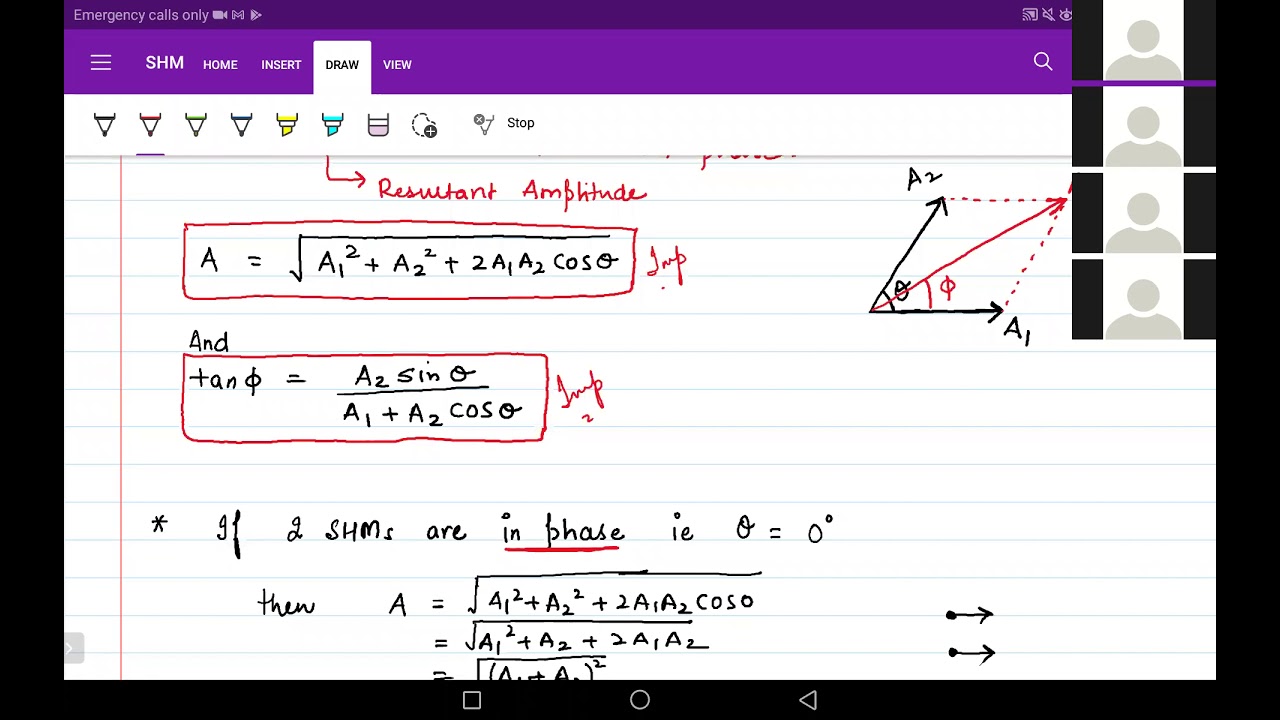 Emergency calls only
SHM HOME INSERT DRAW VIEW
Stop
phase.
Resultant Amplitude
A = √A₁² + A₂² + 2A₁A₂ cosθ Imp
And
tanφ = A₂ sinθ / A₁ + A₂ cosθ Imp
A₂
θ φ
A₁
* If 2 SHMs are in phase ie θ = 0°
then A = √A₁² + A₂² + 2A₁A₂ cos0
= √A₁² + A₂ + 2A₁A₂
= √(A₁ + A₂)²